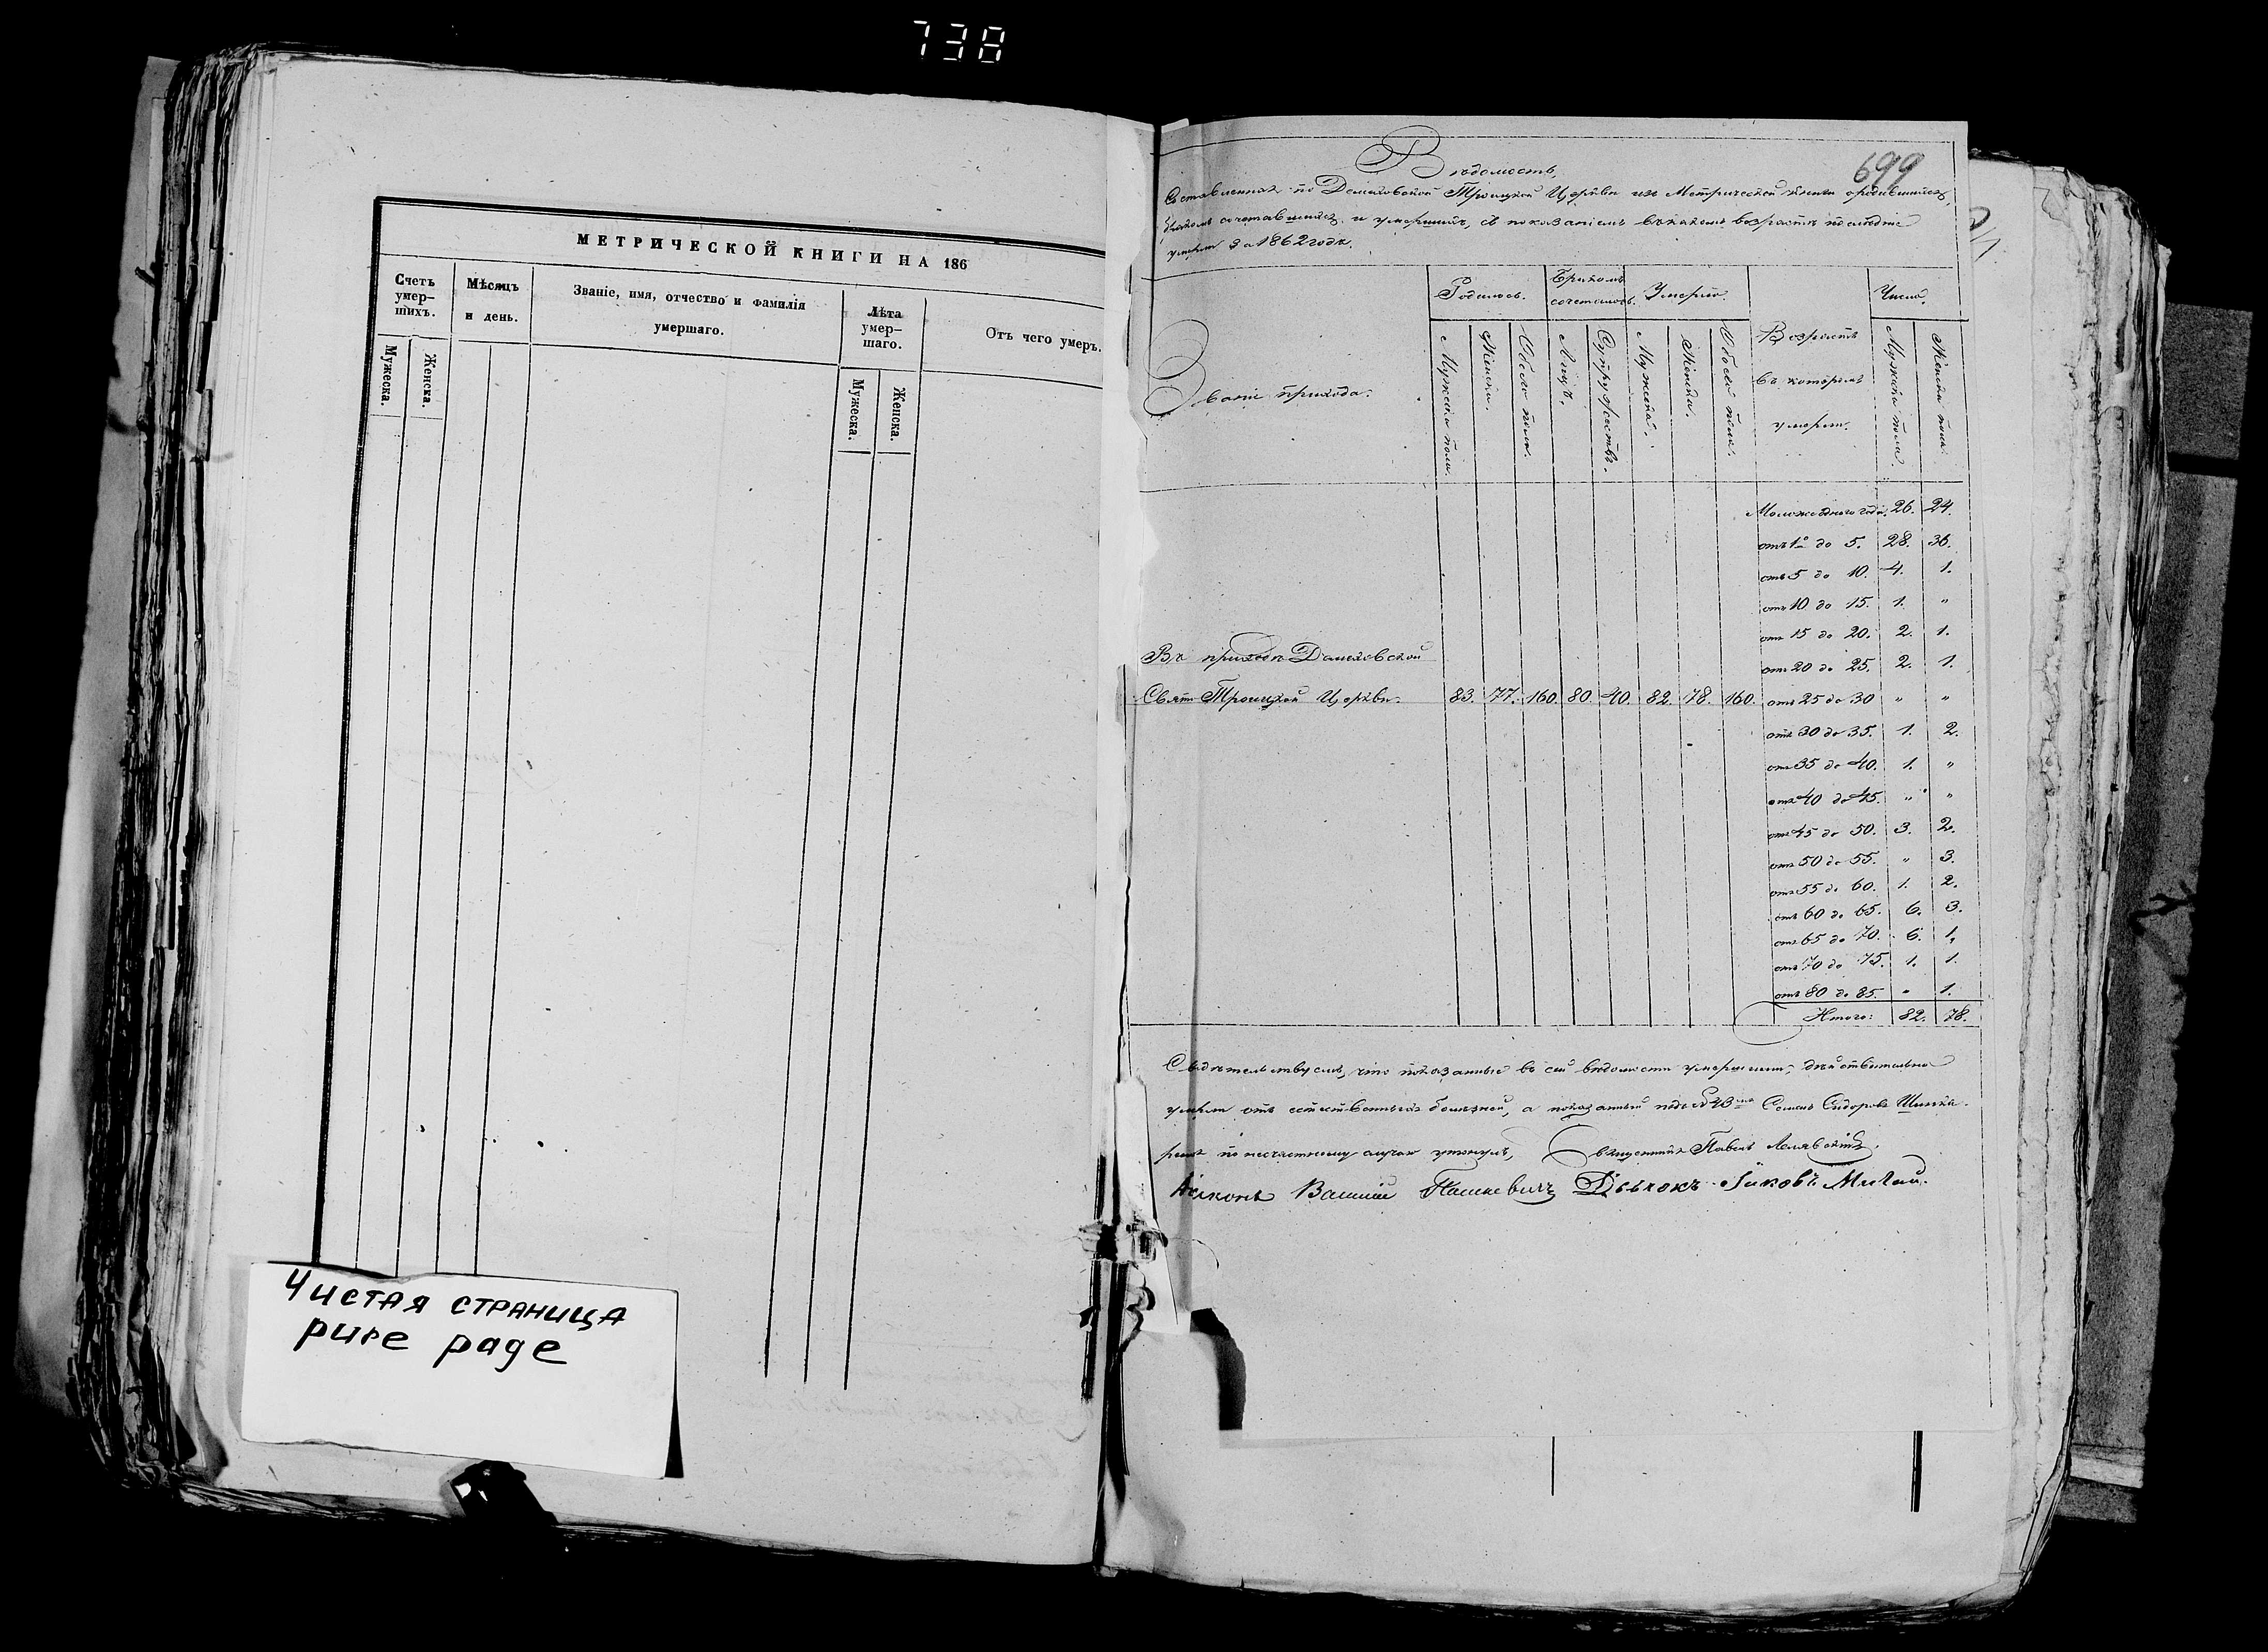 738
МЕТРИЧЕСКОЙ КНИГИ НА 186
Счетъ умер–шихъ.
Мѣсяцъ и день.
Званіе, имя, отчество и фамилія умершаго.
Лѣта умер–шаго.
Отъ чего умеръ.
Мужеска.
Женска.
Мужеска.
Женска.
Чистая страница
pure page
699
Вѣдомость,
Составленная по Троицкой Церкви изъ Метрической книги о родившихся,
бракомъ сочетавшихся и умершихъ, съ показаніемъ въ какомъ возрастѣ послѣдніе
умерли за 1862 годъ.
Званіе прихода.
Родилось.
Бракомъ сочеталось.
Умерло.
Возрастъ въ которомъ умерли.
Число.
Мужска пола.
Женска.
Обоего пола.
Лицъ.
Супружествъ.
Мужска.
Женска.
Обоего пола.
Мужска пола.
Женска пола.
Моложе одного года. 26. 24.
отъ 1º до 5. 28. 36.
отъ 5 до 10. 4. 1.
отъ 10 до 15. 1. "
отъ 15 до 20. 2. 1.
Въ приходѣ
отъ 20 до 25. 2. 1.
Свято Троицкой Церкви. 83. 77. 160. 80. 40. 82. 78. 160. отъ 25 до 30 " "
отъ 30 до 35. 1. 2.
отъ 35 до 40. 1. "
отъ 40 до 45. " "
отъ 45 до 50. 3. 2.
отъ 50 до 55. " 3.
отъ 55 до 60. 1. 2.
отъ 60 до 65. 6. 3.
отъ 65 до 70. 6. 1.
отъ 70 до 75. 1. 1.
отъ 80 до 85. " 1.
Итого: 82. 78.
Свидѣтельствуемъ, что показанные въ сей вѣдомости умершими, дѣйствительно
умерли отъ естественныхъ болѣзней, а показанный подъ № Сидоровъ
по несчастному случаю утонулъ, Священникъ Павелъ
Діаконъ Василій Пашкевичъ Дьячокъ Іаковъ